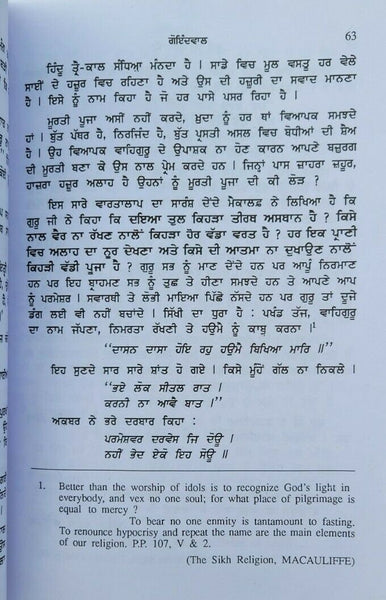 ਗੋਇੰਦਵਾਲ 63
ਹਿੰਦੂ ਤ੍ਰੈ-ਕਾਲ ਸੰਧਿਆ ਮੰਨਦਾ ਹੈ । ਸਾਡੇ ਵਿਚ ਮੂਲ ਵਸਤੂ ਹਰ ਵੇਲੇ
ਸਾਈਂ ਦੇ ਹਜ਼ੂਰ ਵਿਚ ਰਹਿਣਾ ਹੈ ਅਤੇ ਉਸ ਦੀ ਹਜ਼ੂਰੀ ਦਾ ਸਵਾਦ ਮਾਨਣਾ
ਹੈ । ਇਸੇ ਨੂੰ ਨਾਮ ਕਿਹਾ ਹੈ ਜੋ ਹਰ ਪਾਸੇ ਪਸਰ ਰਿਹਾ ਹੈ ।
ਮੂਰਤੀ ਪੂਜਾ ਅਸੀਂ ਨਹੀਂ ਕਰਦੇ, ਖ਼ੁਦਾ ਨੂੰ ਹਰ ਥਾਂ ਵਿਆਪਕ ਸਮਝਦੇ
ਹਾਂ । ਬੁੱਤ ਪੱਥਰ ਹੈ, ਨਿਰਜਿੰਦ ਹੈ, ਬੁੱਤ ਪ੍ਰਸਤੀ ਅਸਲ ਵਿਚ ਬੋਧੀਆਂ ਦੀ ਸ਼ੈਅ
ਹੈ । ਉਹ ਵਿਆਪਕ ਵਾਹਿਗੁਰੂ ਦੇ ਉਪਾਸ਼ਕ ਨਾ ਹੋਣ ਕਾਰਨ ਆਪਣੇ ਬਜ਼ੁਰਗ
ਦੀ ਮੂਰਤੀ ਬਣਾ ਕੇ ਉਸ ਨਾਲ ਪ੍ਰੇਮ ਕਰਦੇ ਹਨ । ਜਿਨ੍ਹਾਂ ਪਾਸ ਜ਼ਾਹਰਾ ਜ਼ਹੂਰ,
ਹਾਜ਼ਰਾ ਹਜ਼ੂਰ ਅਲਾਹ ਹੈ ਉਹਨਾਂ ਨੂੰ ਮੂਰਤੀ ਪੂਜਾ ਦੀ ਕੀ ਲੋੜ ?
ਇਸ ਸਾਰੇ ਵਾਰਤਾਲਾਪ ਦਾ ਸਾਰੰਸ਼ ਦੇਂਦੇ ਮੈਕਾਲਫ਼ ਨੇ ਲਿਖਿਆ ਹੈ ਕਿ
ਗੁਰੂ ਜੀ ਨੇ ਕਿਹਾ ਕਿ ਦਇਆ ਤੁਲ ਕਿਹੜਾ ਤੀਰਥ ਅਸਥਾਨ ਹੈ ? ਕਿਸੇ
ਨਾਲ ਵੈਰ ਨਾ ਰੱਖਣ ਨਾਲੋਂ ਕਿਹੜਾ ਹੋਰ ਵੱਡਾ ਵਰਤ ਹੈ ? ਹਰ ਇਕ ਪ੍ਰਾਣੀ
ਵਿਚ ਅਲਾਹ ਦਾ ਨੂਰ ਦੇਖਣਾ ਅਤੇ ਕਿਸੇ ਦੀ ਆਤਮਾ ਨਾ ਦੁਖਾਉਣ ਨਾਲੋਂ
ਕਿਹੜੀ ਵੱਡੀ ਪੂਜਾ ਹੈ ? ਗੁਰੂ ਸਭ ਨੂੰ ਮਾਣ ਦੇਂਦੇ ਹਨ ਪਰ ਆਪੂੰ ਨਿਰਮਾਣ
ਹਨ ਪਰ ਇਹ ਬ੍ਰਾਹਮਣ ਸਭ ਨੂੰ ਤੁਛ ਤੇ ਹੀਣਾ ਸਮਝਦੇ ਹਨ ਤੇ ਆਪਣੇ ਆਪ
ਨੂੰ ਪਰਮੇਸ਼ਰ । ਸਵਾਰਥੀ ਤੇ ਲੋਭੀ ਮਾਇਆ ਪਿੱਛੇ ਨੱਸਦੇ ਹਨ ਪਰ ਗੁਰੂ ਤਾਂ ਦੂਜੇ
ਡੰਗ ਲਈ ਵੀ ਨਹੀਂ ਬਚਾਂਦੇ । ਸਿੱਖੀ ਦਾ ਧੁਰਾ ਹੈ : ਪਖੰਡ ਤੱਜ, ਵਾਹਿਗੁਰੂ
ਦਾ ਨਾਮ ਜੱਪਣਾ, ਨਿਮਰਤਾ ਰੱਖਣੀ ਤੇ ਹਉਮੈ ਨੂੰ ਕਾਬੂ ਕਰਨਾ ।1
“ਦਾਸਨ ਦਾਸਾ ਹੋਇ ਰਹੁ ਹਉਮੈ ਬਿਖਿਆ ਮਾਰਿ ॥”
ਇਹ ਸੁਣਦੇ ਸਾਰ ਸਾਰੇ ਸ਼ਾਂਤ ਹੋ ਗਏ । ਕਿਸੇ ਮੂੰਹੋਂ ਗੱਲ ਨਾ ਨਿਕਲੇ ।
“ਭਏ ਲੋਕ ਸੀਤਲ ਰਾਤ ।
ਕਰਨੀ ਨਾ ਆਵੈ ਬਾਤ ।”
ਅਕਬਰ ਨੇ ਭਰੇ ਦਰਬਾਰ ਕਿਹਾ :
ਪਰਮੇਸ਼ਵਰ ਦਰਵੇਸ ਜਿ ਦੋਊ ।
ਨਹੀਂ ਭੇਦ ਏਕੋ ਇਹ ਸੋਊ ॥
1. Better than the worship of idols is to recognize God's light in
everybody, and vex no one soul; for what place of pilgrimage is
equal to mercy ?
To bear no one enmity is tantamount to fasting.
To renounce hypocrisy and repeat the name are the main elements
of our religion. P.P. 107, V & 2.
(The Sikh Religion, MACAULIFFE)